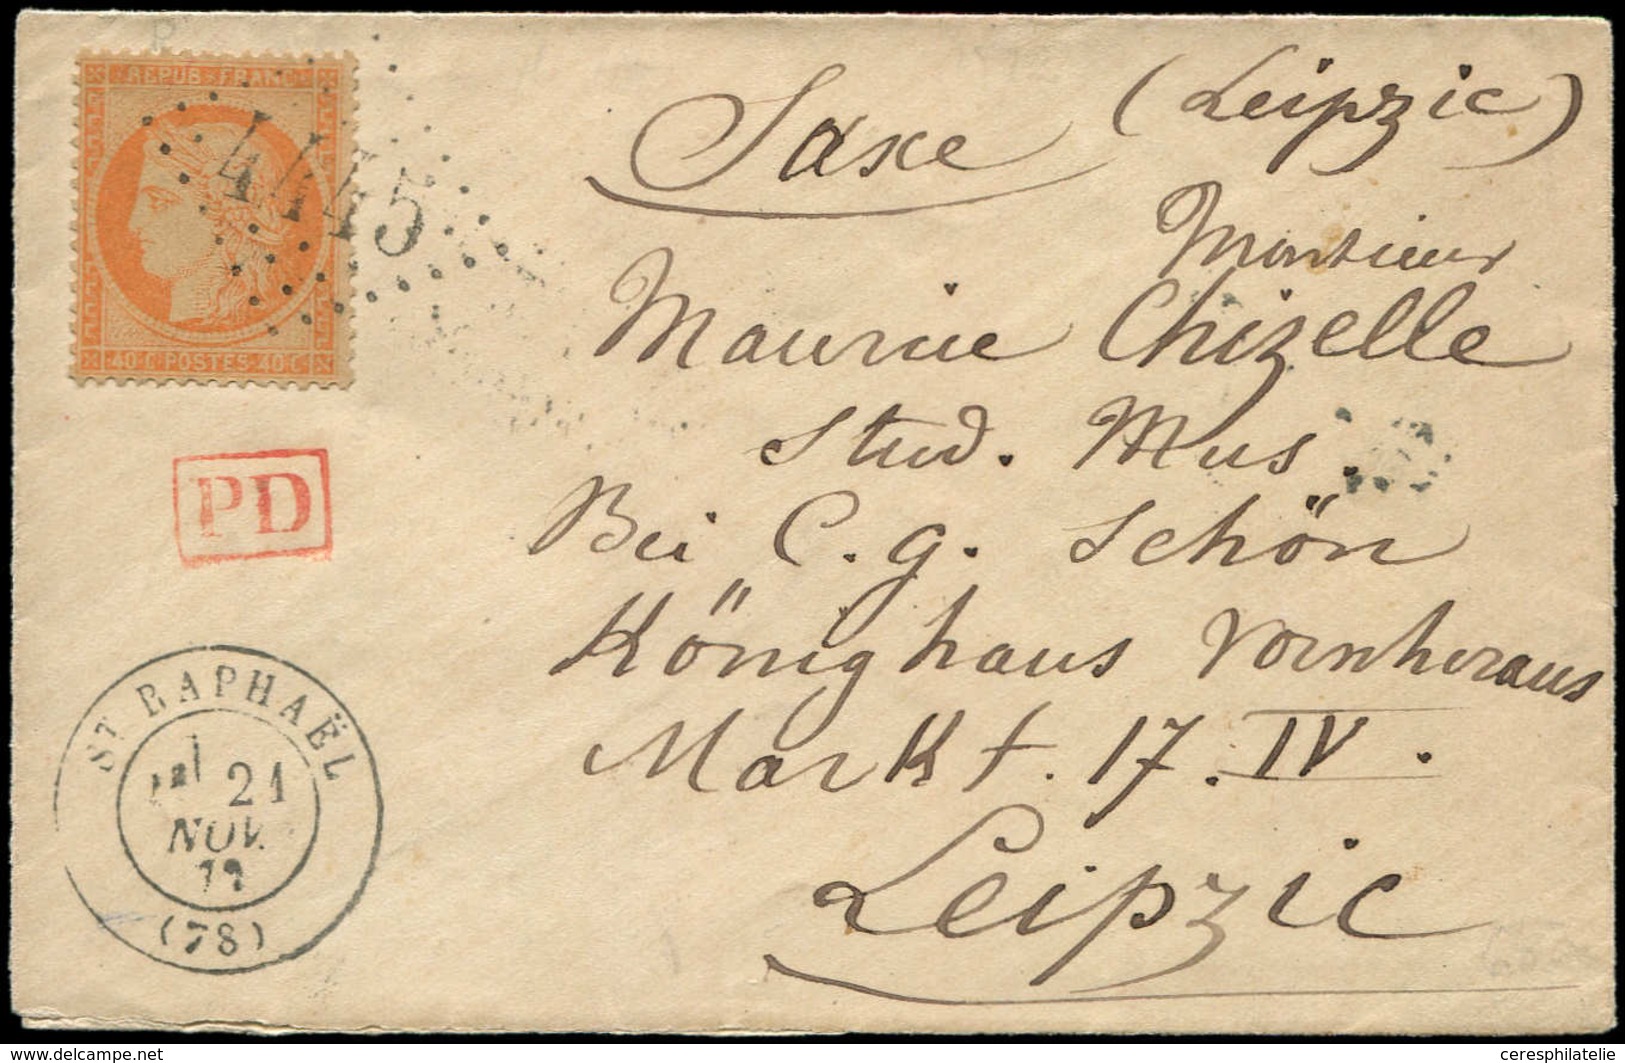 REPUB·FRANC
40·C·POSTES·40·C
4445
PD
ST RAPHAËL
21
NOV.
72
(78)
Saxe (Leipzic)
Monsieur
Maurice Chizelle
Stud. Mus.
Bei C. G. Schön
Könighaus vornheraus
Markt. 17. IV.
Leipzic
© www.delcampe.net
ceresphilatelie